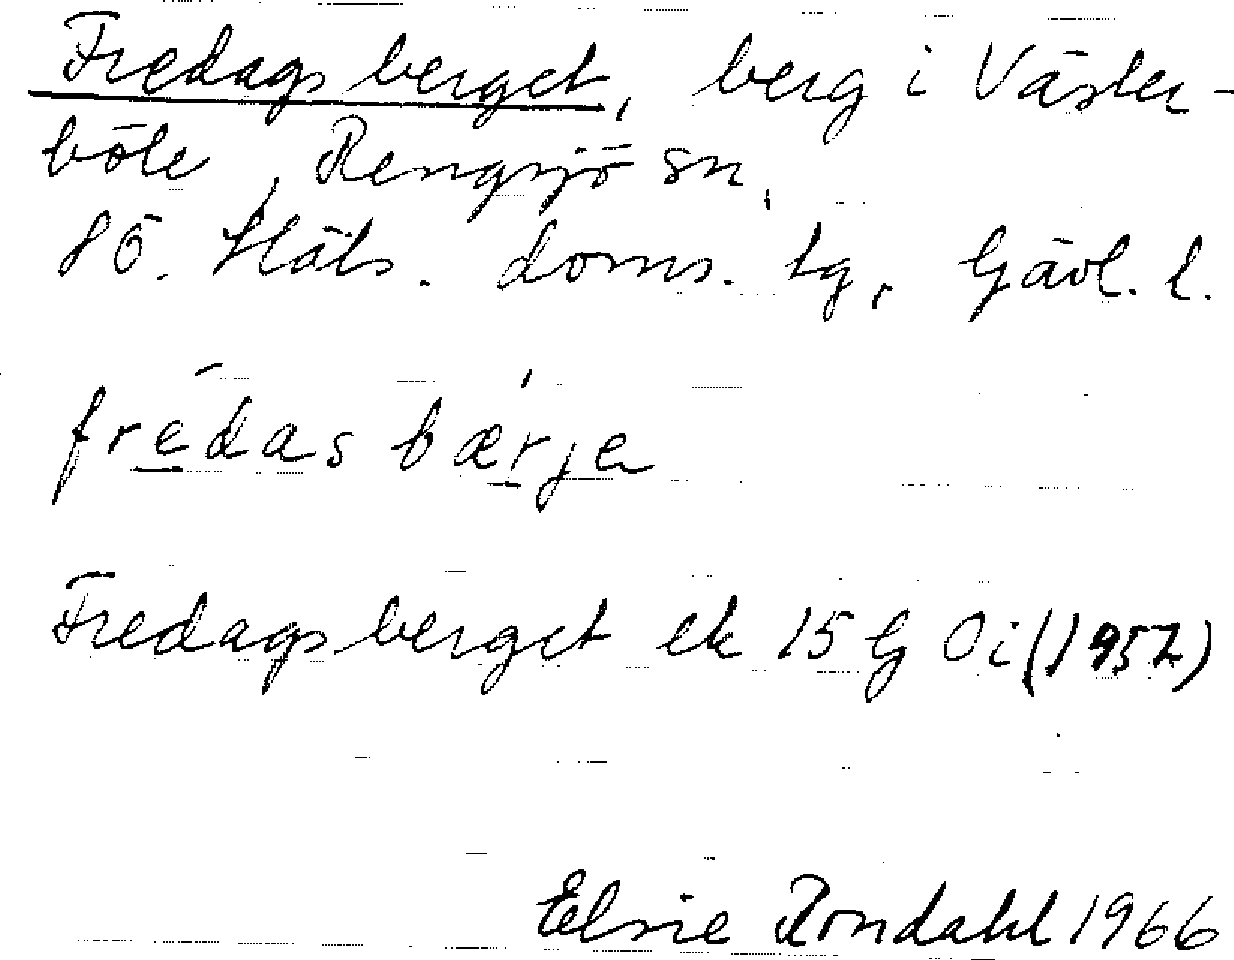 Fredagsberget, berg i Väster-
böle, Rengsjö sn,
SÖ. Häls. doms. tg, Gävl. l.
fredas bærje
Fredagsberget ek 15 G 0 i (1957)
Elsie Rondahl 1966